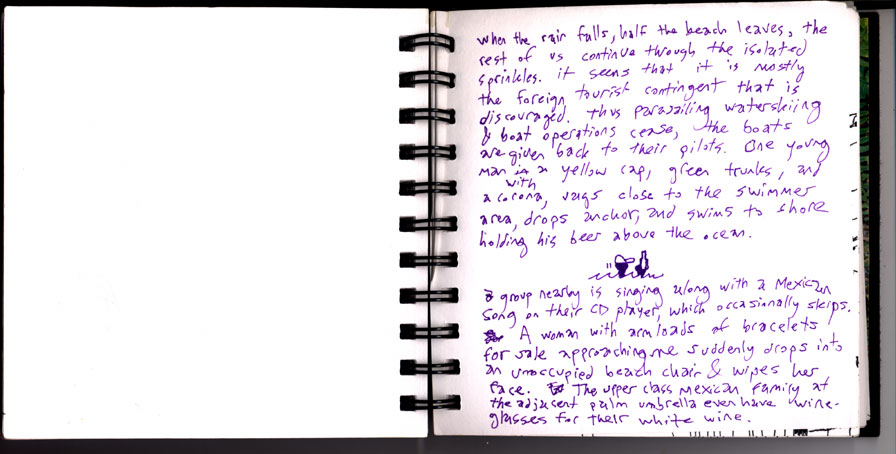 when the rain falls, half the beach leaves, the
rest of us continue through the isolated
sprinkles. it seems that it is mostly
the foreign tourist contingent that is
discouraged. Thus parasailing waterskiing
& boat operations cease, the boats
are given back to their pilots. One young
man in a yellow cap, green trunks, and
with
a corona, close to the swimmer
area, drops anchor, and swims to shore
holding his beer above the ocean.
a group nearby is singing along with a Mexican
song on their CD player, which occasionally skips.
A woman with armloads of bracelets
for sale approaching me suddenly drops into
an unoccupied beach chair & wipes her
face. The upper class Mexican family at
the adjacent palm umbrella even have wine-
glasses for their white wine.